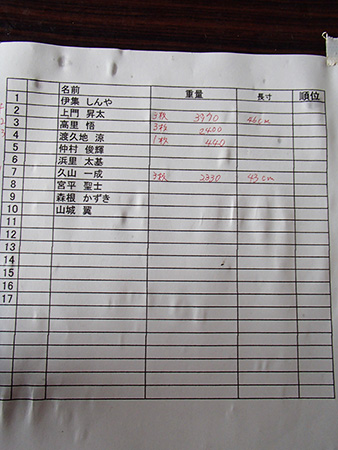 名前 重量 長寸 順位
1 伊集 しんや
2 上門 昇太 3枚 3970 46cm
3 高里 悟 3枚 2400
4 渡久地 涼 1枚 440
5 仲村 俊輝
6 浜里 太基
7 久山 一成 3枚 2330 43cm
8 宮平 聖士
9 森根 かずき
10 山城 翼
11
12
13
14
15
16
17